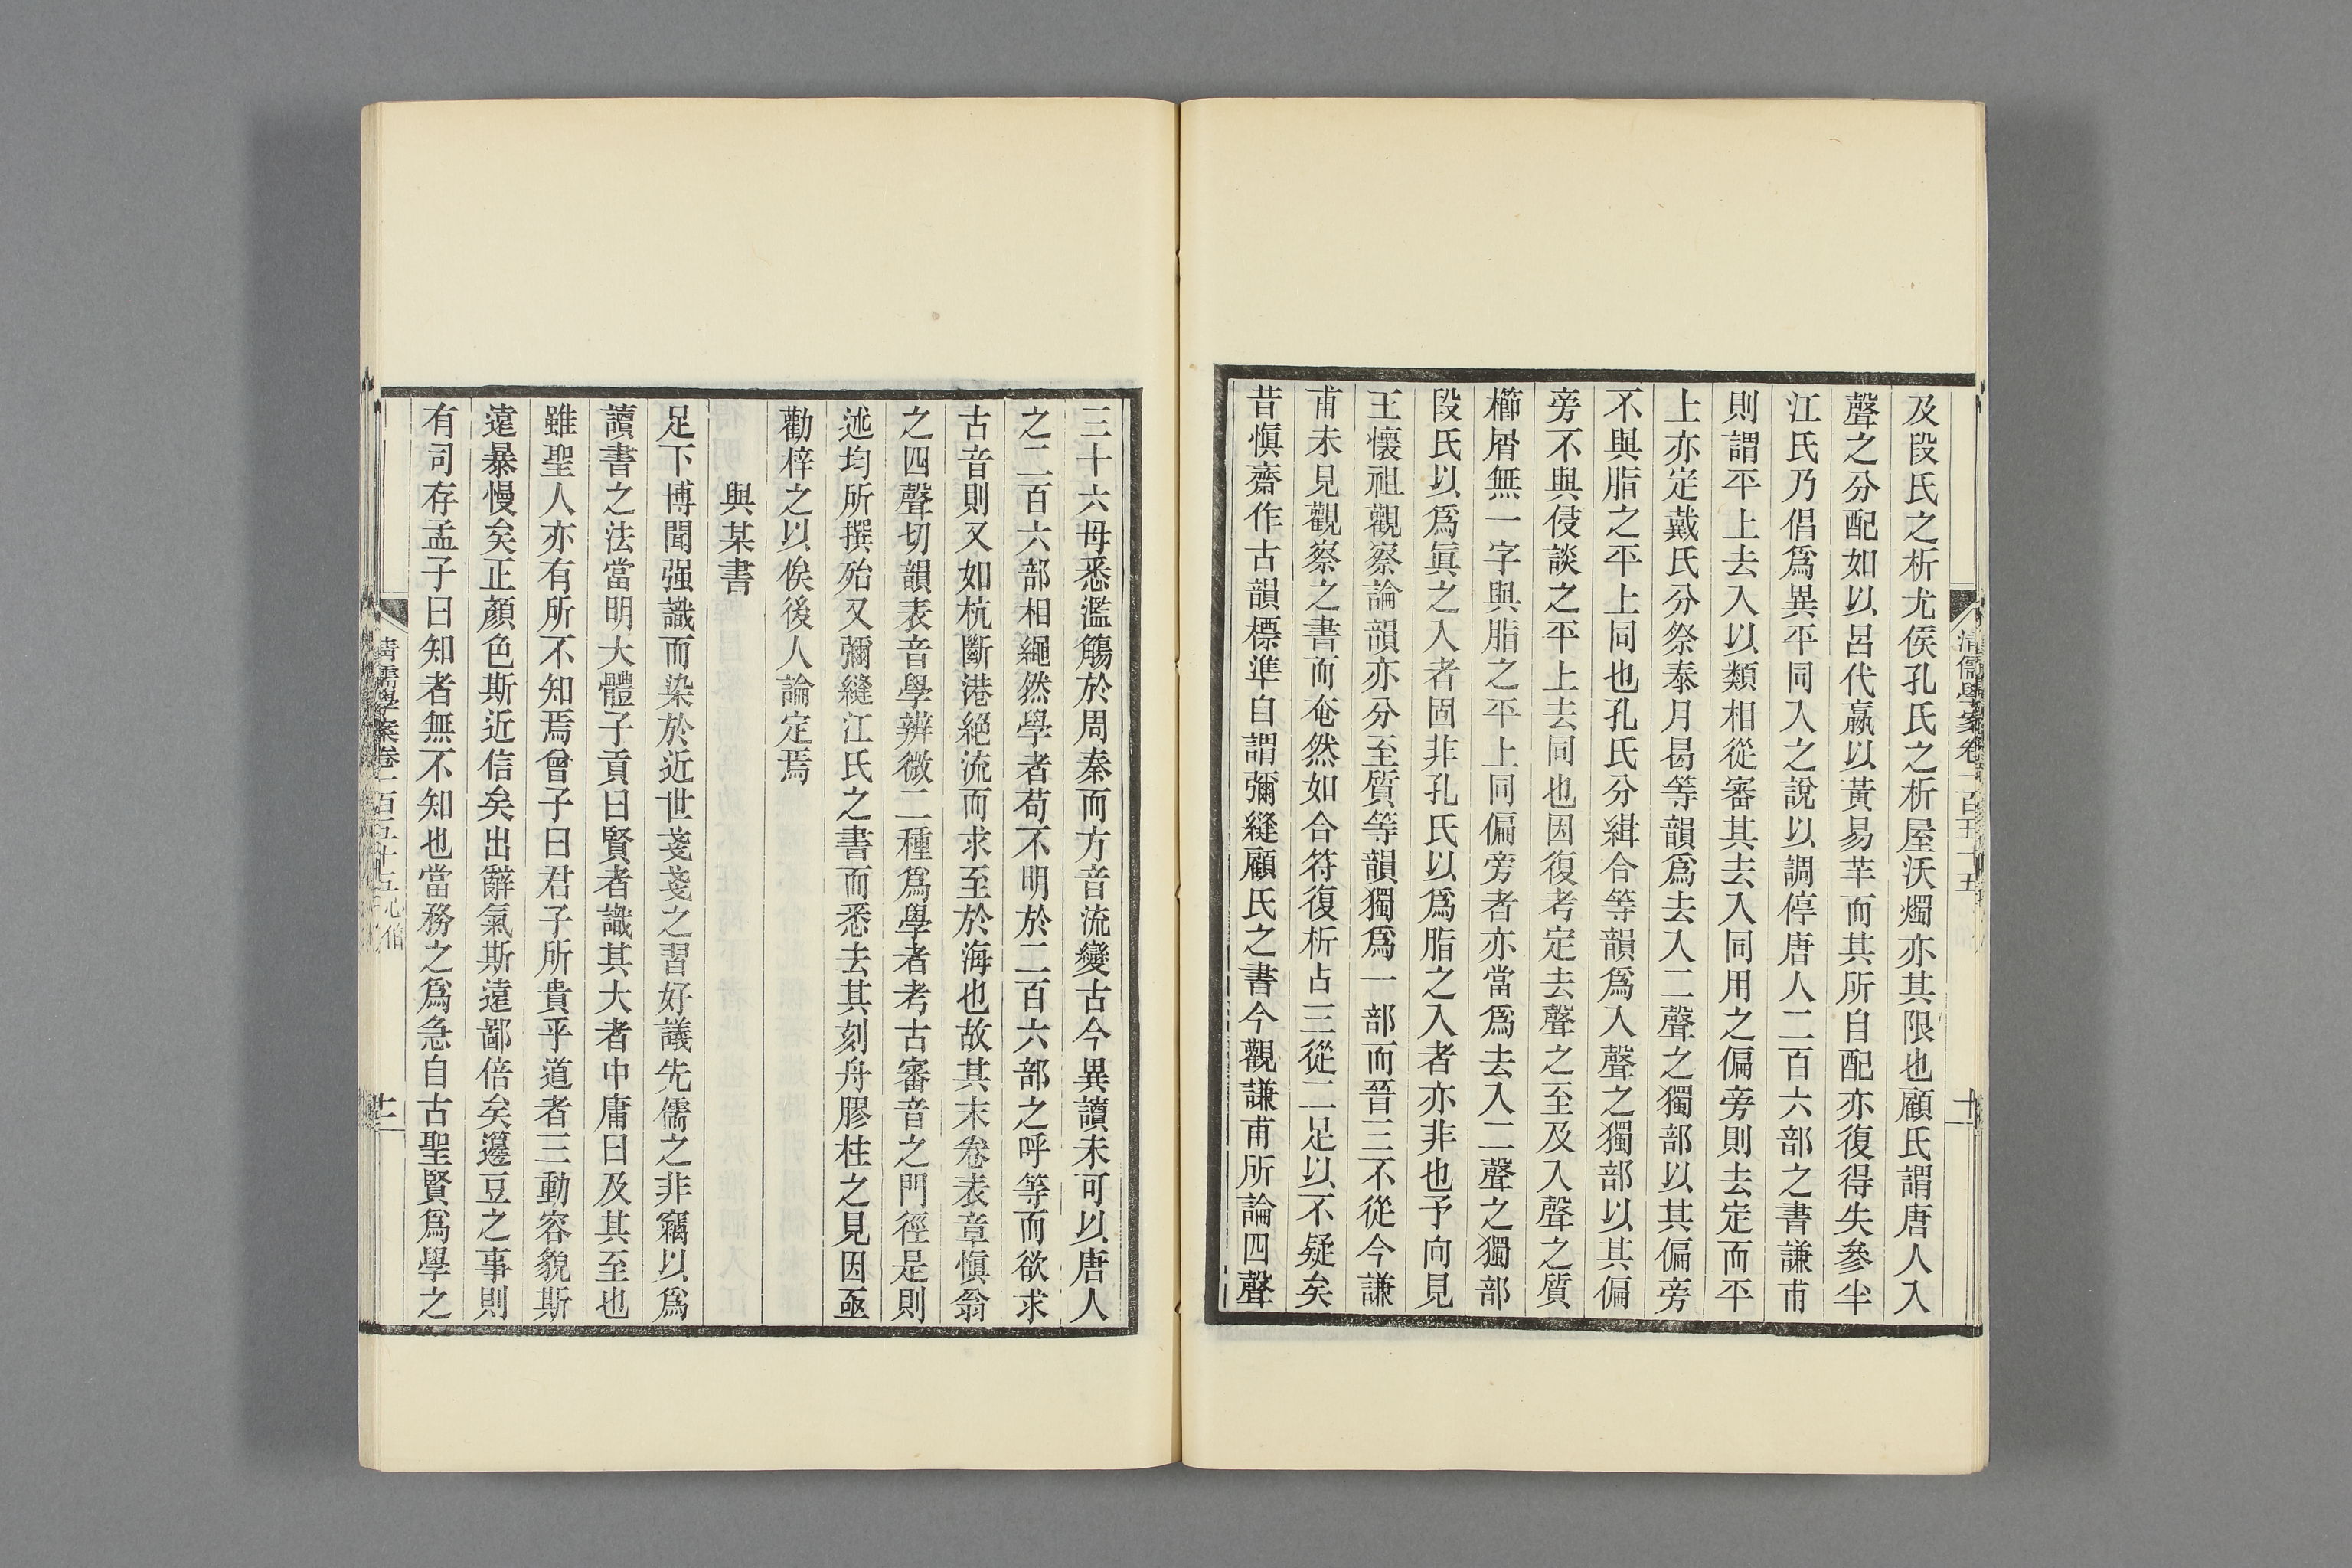 及段氏之析尤侯孔氏之析屋沃燭亦其限也顧氏謂唐人入
聲之分配如以呂代嬴以黃易芈而其所自配亦復得失參半
江氏乃倡爲異平同入之說以調停唐人二百六部之書謙甫
則謂平上去入以類相從審其去入同用之偏旁則去定而平
上亦定戴氏分祭泰月曷等韻爲去入二聲之獨部以其偏旁
不與脂之平上同也孔氏分緝合等韻爲入聲之獨部以其偏
旁不與侵談之平上去同也因復考定去聲之至及入聲之質
櫛屑無一字與脂之平上同偏旁者亦當爲去入二聲之獨部
段氏以爲眞之入者固非孔氏以爲脂之入者亦非也予向見
王懷祖觀察論韻亦分至質等韻獨爲一部而晉三不從今謙
甫未見觀察之書而奄然如合符復析占三從二足以不疑矣
昔愼齋作古韻標準自謂彌縫顧氏之書今觀謙甫所論四聲
清儒學案卷一百五十五
十一
三十六母悉濫觴於周秦而方音流變古今異讀未可以唐人
之二百六部相繩然學者苟不明於二百六部之呼等而欲求
古音則又如杭斷港絕流而求至於海也故其末卷表章愼翁
之四聲切韻表音學辨微二種爲學者考古審音之門徑是則
述均所撰殆又彌縫江氏之書而悉去其刻舟膠柱之見因亟
勸梓之以俟後人論定焉
與某書
足下博聞强識而染於近世戔戔之習好議先儒之非竊以爲
讀書之法當明大體子貢曰賢者識其大者中庸曰及其至也
雖聖人亦有所不知焉曾子曰君子所貴乎道者三動容貌斯
遠暴慢矣正顏色斯近信矣出辭氣斯遠鄙倍矣籩豆之事則
有司存孟子曰知者無不知也當務之爲急自古聖賢爲學之
清儒學案卷一百五十五心伯